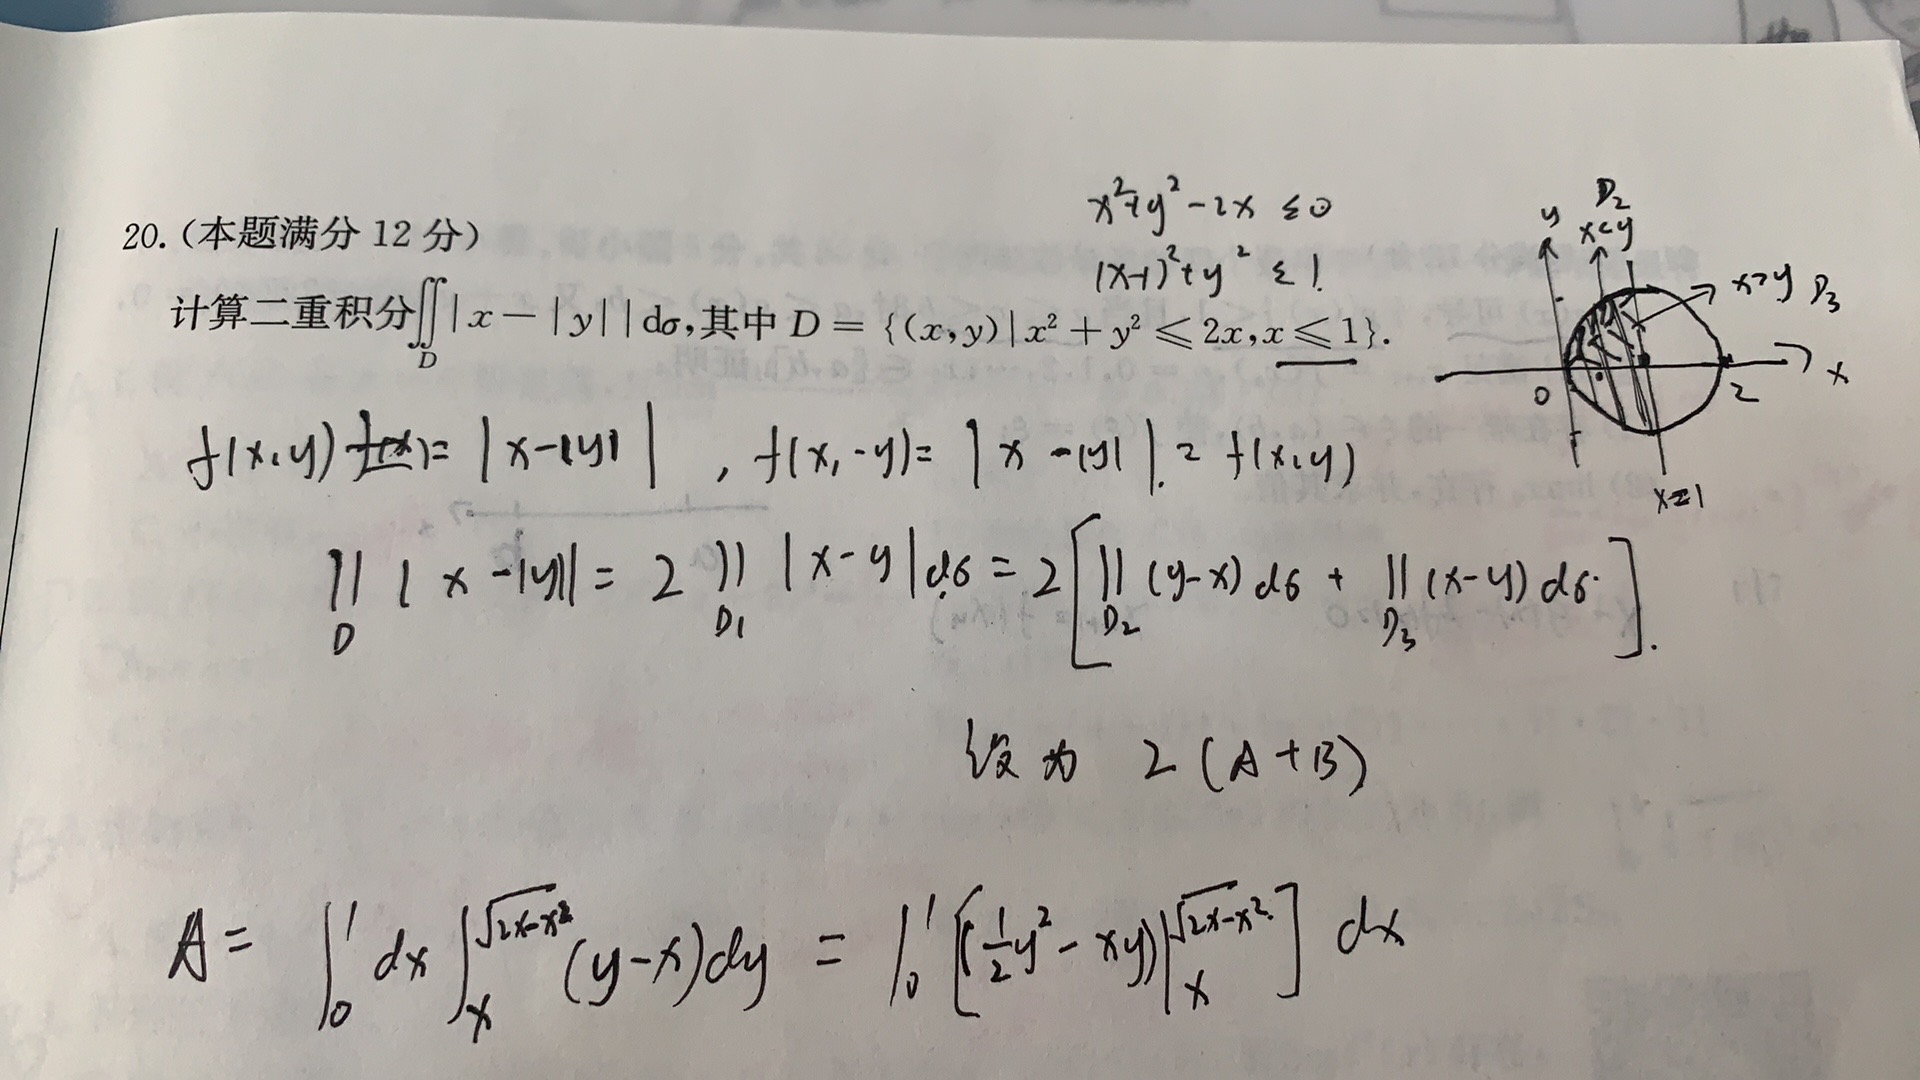 x²+y²-2x ≤0
(x-1)²+y² ≤1.
20.(本题满分 12 分)
计算二重积分∬_D |x-|y||dσ,其中 D = {(x,y)|x²+y²⩽2x,x⩽1}.
y
D₂
x<y
x>y D₃
0
2
x
x=1
f(x,y) = |x-|y|| , f(x,-y)= |x-|y||. = f(x,y)
∬_D |x-|y|| = 2∬_D₁ |x-y|dσ = 2[∬_D₂ (y-x)dσ + ∬_D₃ (x-y)dσ].
设为 2(A+B)
A= ∫₀¹ dx ∫_x^√(2x-x²) (y-x)dy = ∫₀¹ [(½y²-xy)|_x^√(2x-x²)] dx